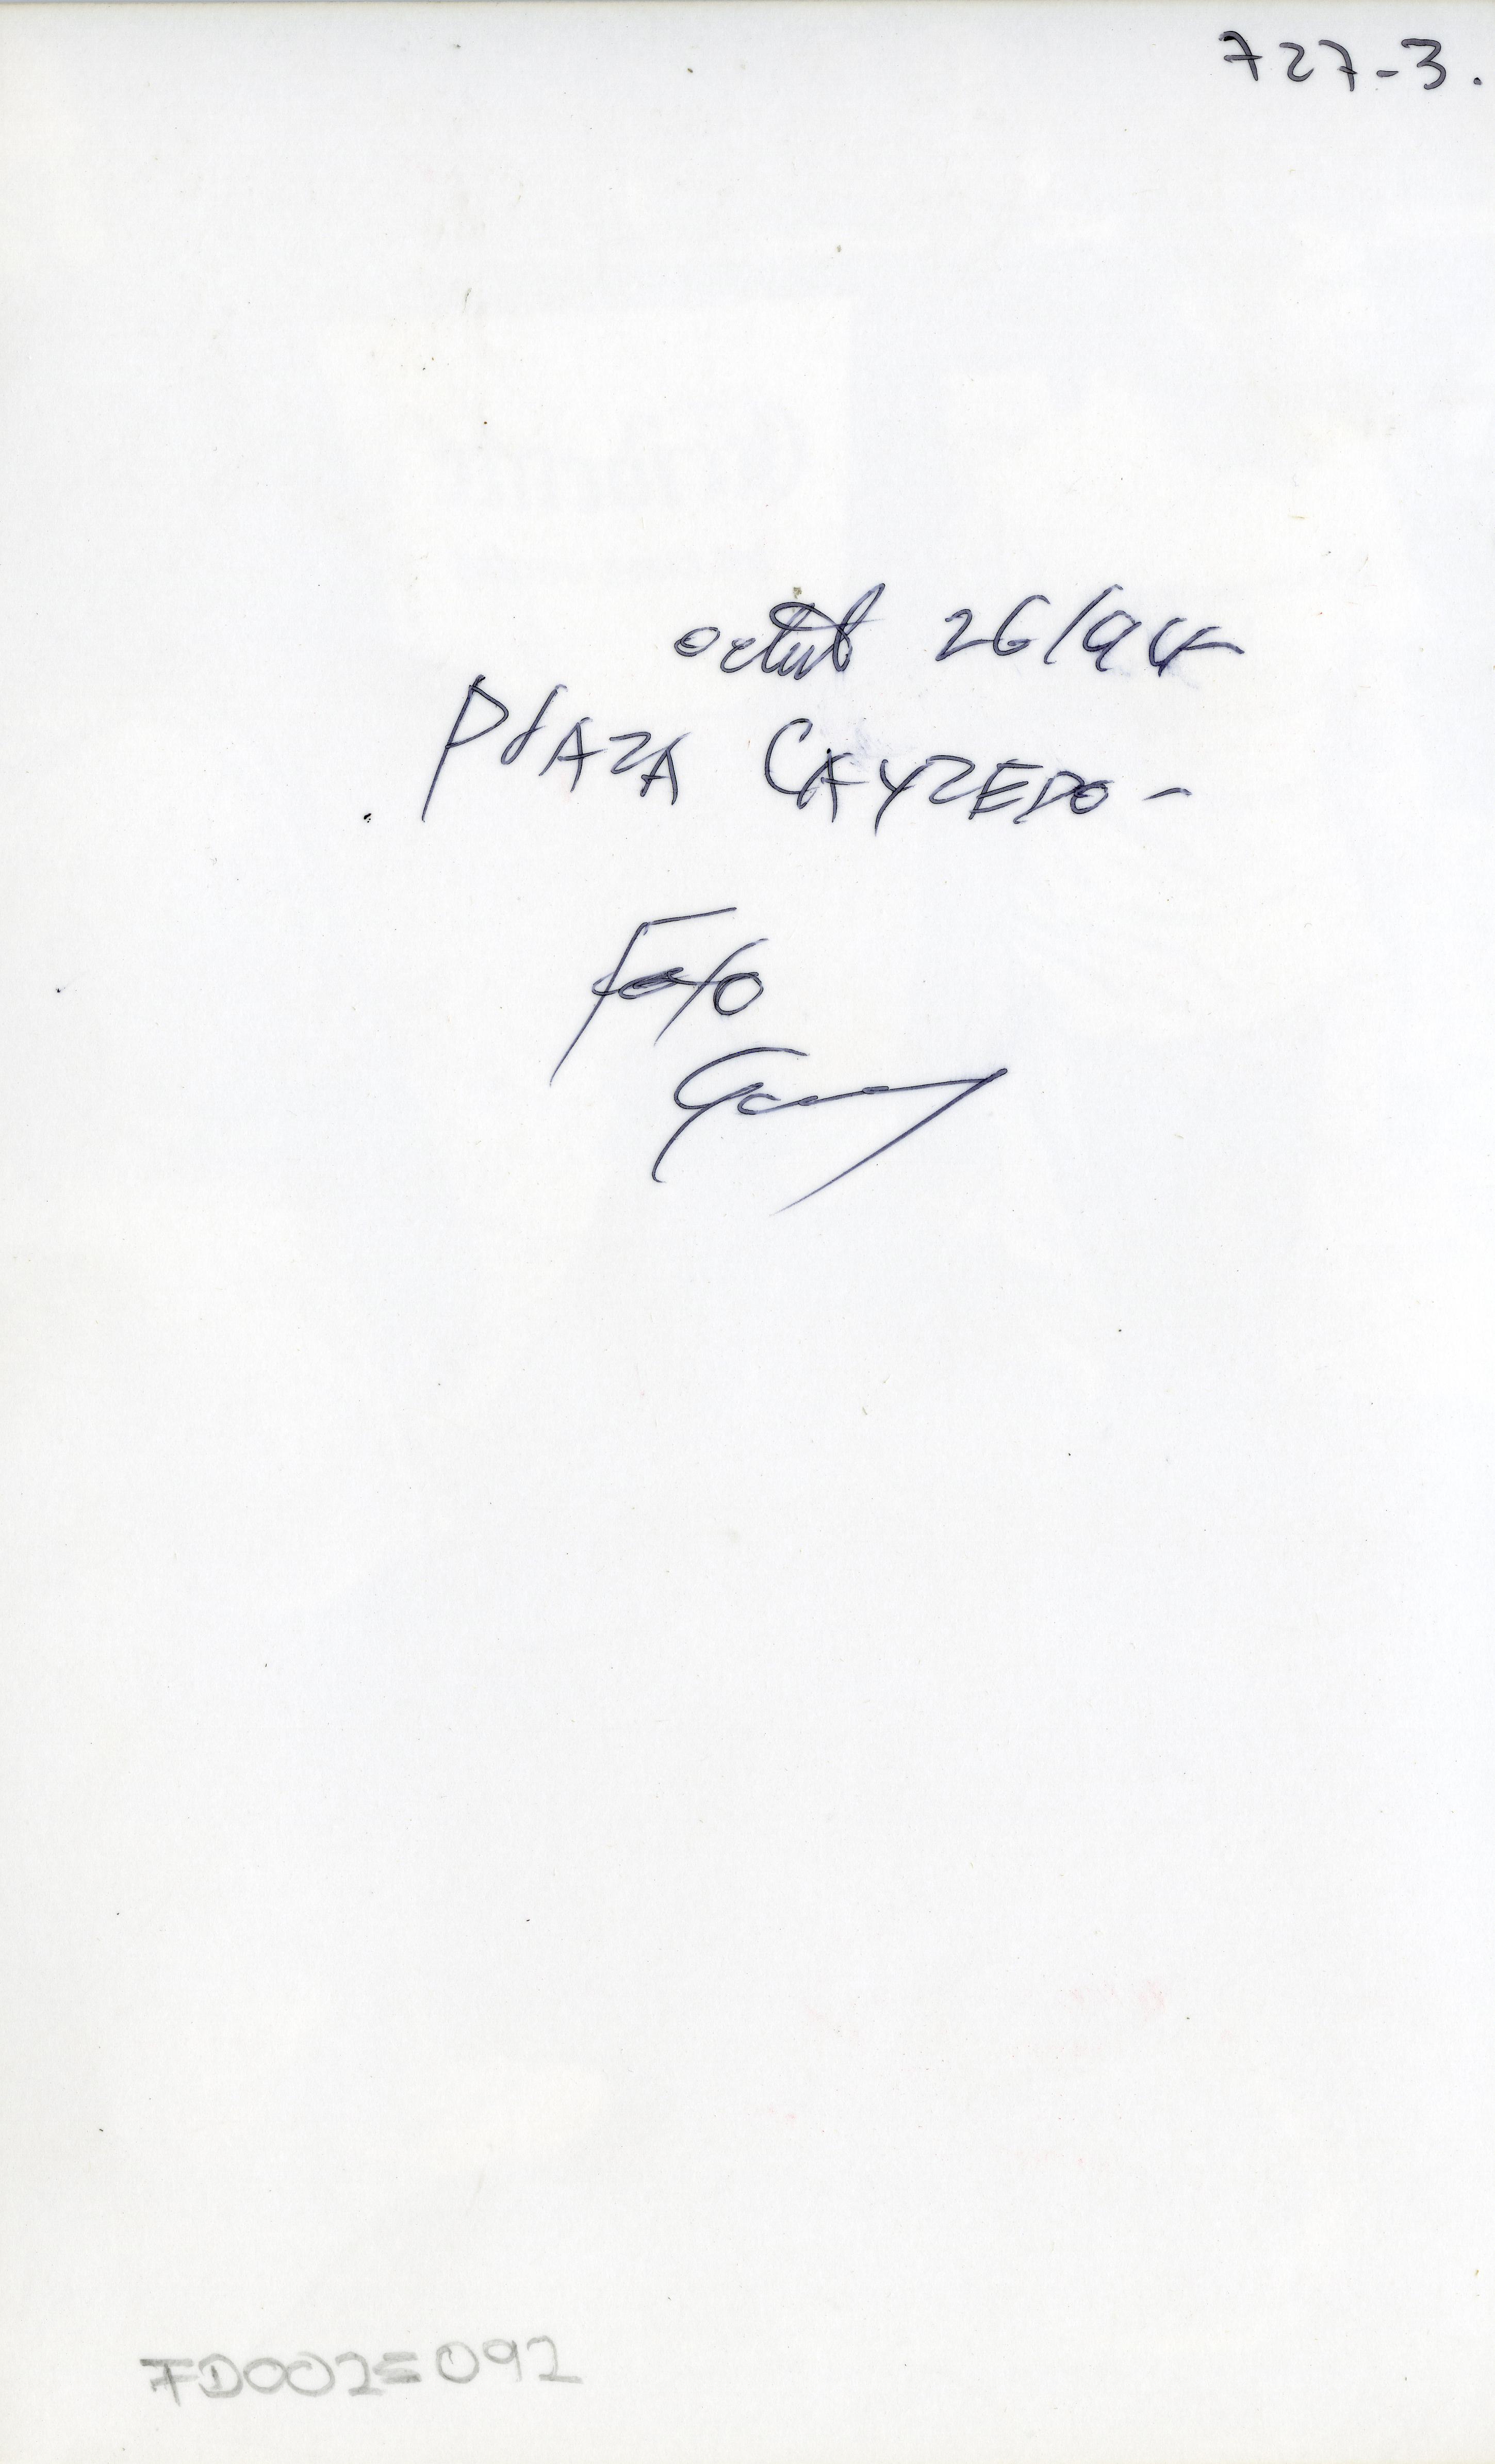 727-3.
octub 26/94
PlAZA CAYZEDO-
Foto
FD002=092